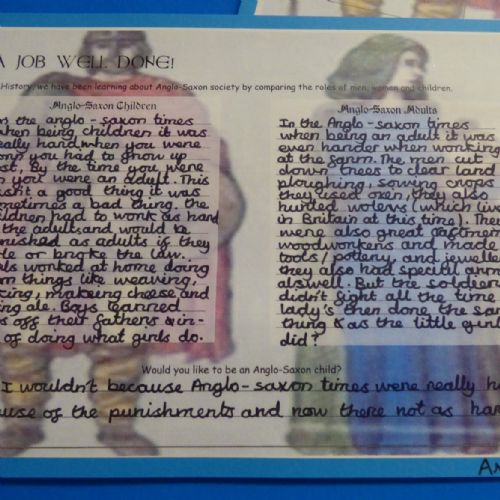 A JOB WELL DONE!
History, we have been learning about Anglo-Saxon society by comparing the roles of men, women and children.
Anglo-Saxon Children
In the anglo-saxon times
when being children it was
really hand, when you were
you had to grow up
By the time you were
you were an adult. This
isn't a good thing it was
sometimes a bad thing. the
children had to work as hard
the adult, and would be
punished as adults is they
or brake the law.
worked at home doing
things like weaving,
makeing cheese and
ale. Boys leanned
off their fathens &in-
of doing what girls do.
Anglo-Saxon Adults
In the Anglo-saxon times
when being an adult it was
even hander when working
at the farm. The men cut
down trees to clear land
ploughing, sowing crops
they used oxen, they also
hunted wolevs (which live
in Britain at this time). The
were also great
woodworkens and made
tools/poteny, and jewelle
they also had special
alswell. But the soldeers
didn't fight all the time
lady's then done the sam
thing &as the little girls
did?
Would you like to be an Anglo-Saxon child?
I wouldn't because Anglo-saxon times were really
of the punishments and now there not as